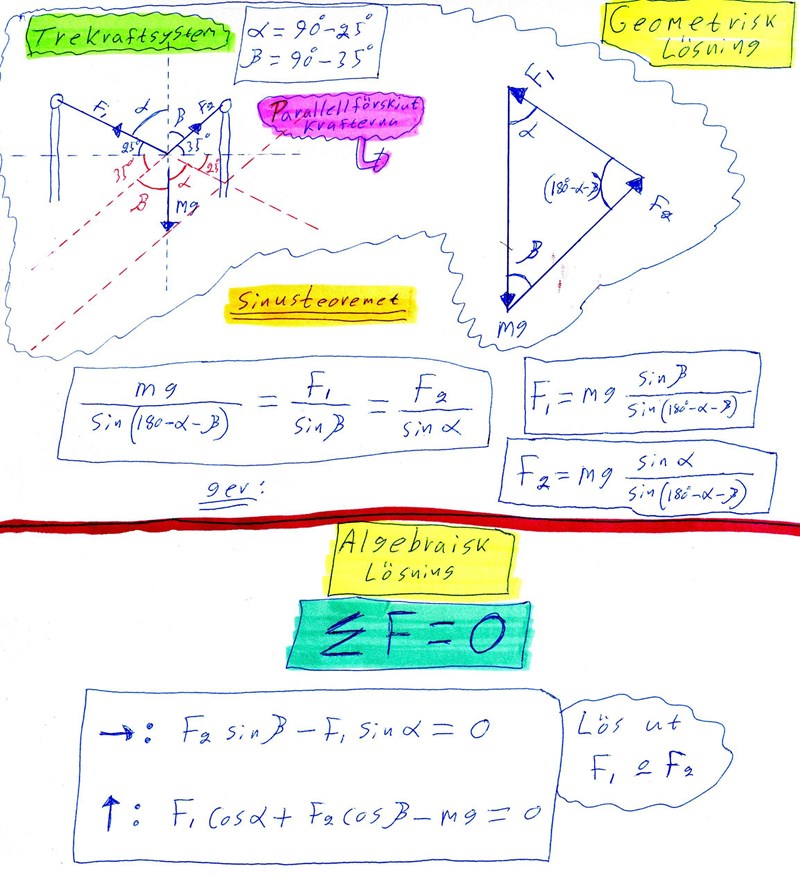 Trekraftsystem
α = 90°-25°
β = 90°-35°
Geometrisk
Lösning
F₁
α
β
F₂
25°
35°
35°
25°
β
α
mg
Parallellförskjut
krafterna
F₁
α
(180°-α-β)
F₂
β
mg
Sinusteoremet
mg / sin(180-α-β) = F₁ / sin β = F₂ / sin α
F₁ = mg sin β / sin(180°-α-β)
F₂ = mg sin α / sin(180°-α-β)
ger:
Algebraisk
Lösning
Σ F = 0
→: F₂ sin β - F₁ sin α = 0
↑: F₁ cos α + F₂ cos β - mg = 0
Lös ut
F₁ o F₂